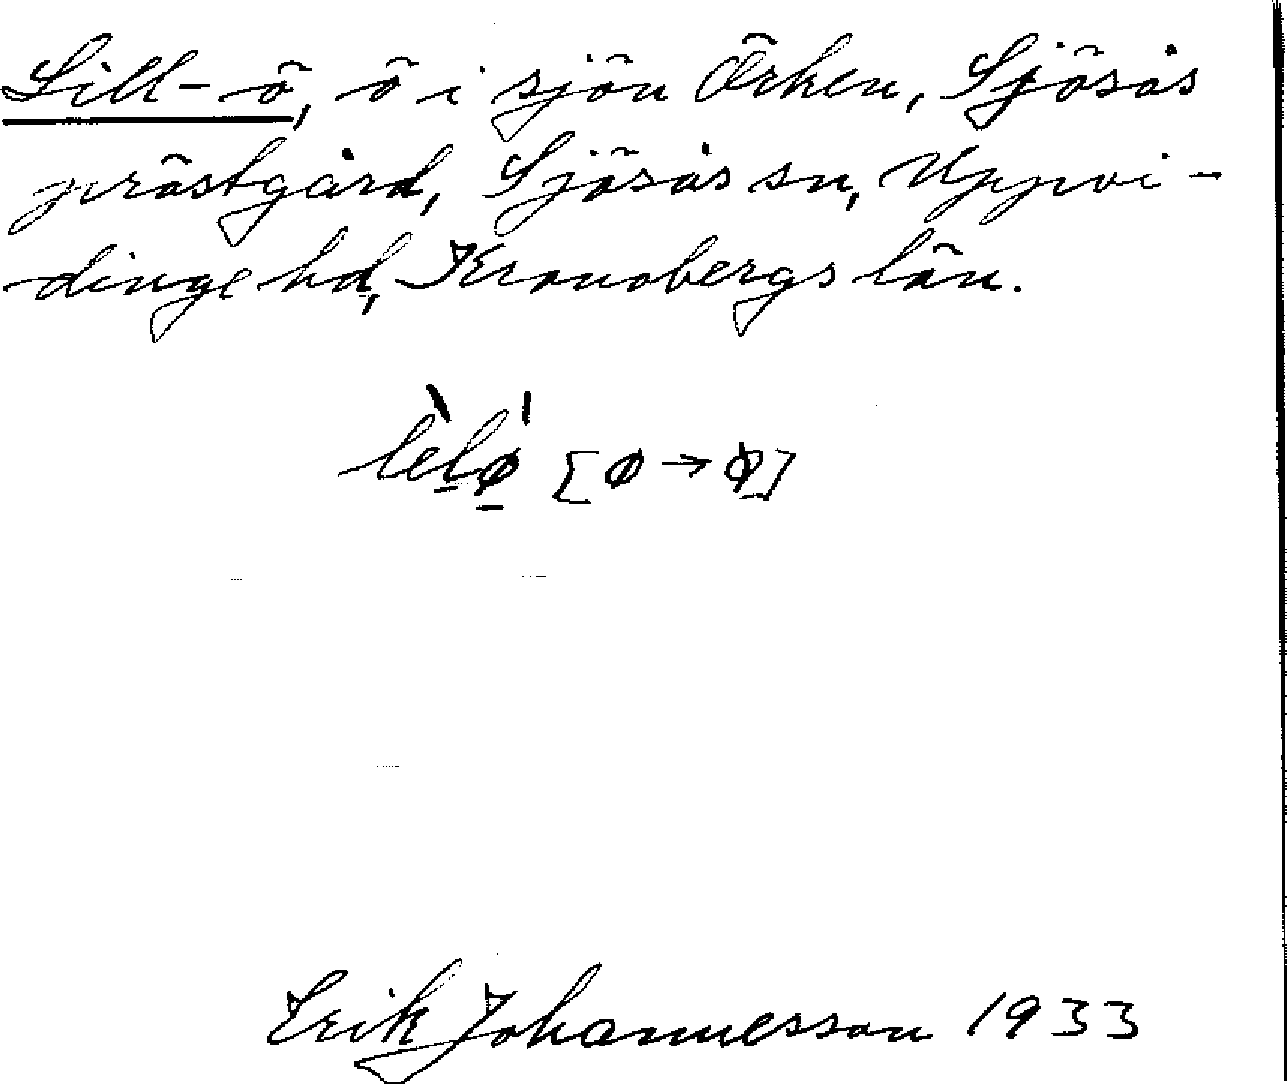 Lill-ö, ö i sjön Örken, Sjösås
prästgård, Sjösås sn, Uppvi-
dinge hd, Kronobergs län.
lèl̠ǿ̠ [ø → ɸ]
Erik Johannesson 1933